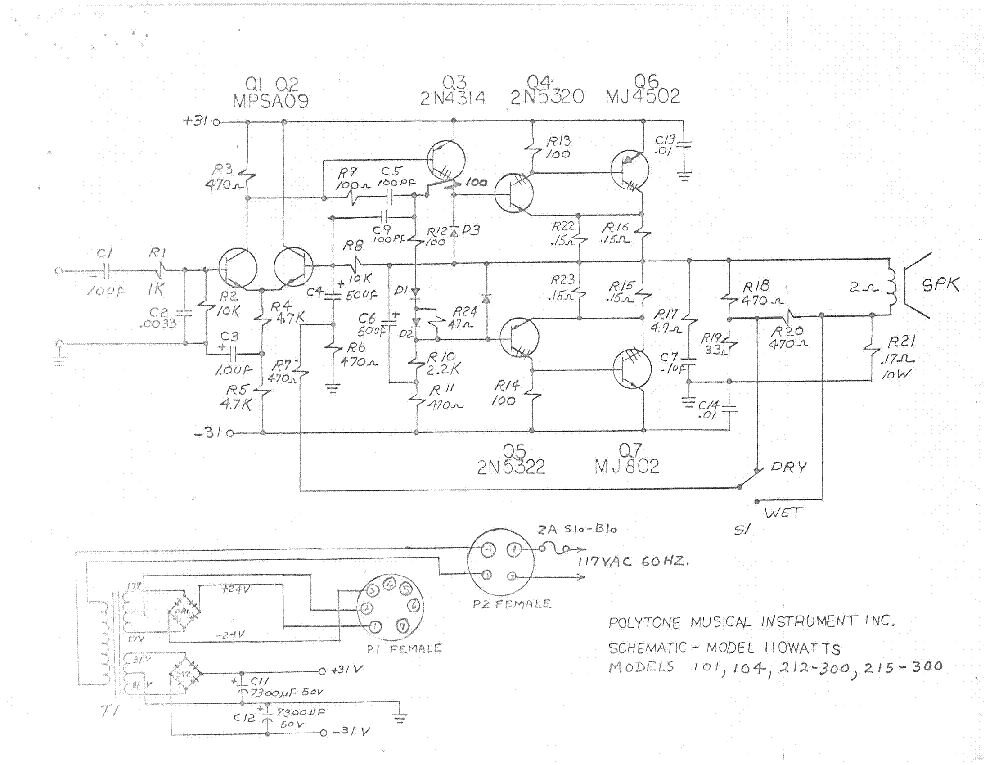 Q1 Q2
MPSA09
Q3
2N4314
Q4
2N5320
Q6
MJ4502
+31
R3
470Ω
R7
100Ω
C5
100PF
100
R13
100
C13
.01
C9
100PF
R12
100
D3
R22
.15Ω
R16
.15Ω
C1
10UF
R1
1K
R8
10K
C2
.0033
R2
10K
R4
4.7K
C4
50UF
D1
R24
47Ω
R23
.15Ω
R15
.15Ω
R18
470Ω
2Ω
SPK
C3
10UF
C6
50UF
D2
R17
4.7Ω
R19
33Ω
R20
470Ω
R21
.17Ω
10W
R5
4.7K
R7
470Ω
R6
470Ω
R10
2.2K
R11
470Ω
R14
100
C7
.1UF
C14
.01
-31
Q5
2N5322
Q7
MJ802
DRY
WET
S1
2A Slo-Blo
117VAC 60HZ.
P2 FEMALE
+24V
-24V
P1 FEMALE
+31V
C11
7300UF 50V
C12
7300UF
50V
-31V
T1
POLYTONE MUSICAL INSTRUMENT INC.
SCHEMATIC - MODEL 110WATTS
MODELS 101, 104, 212-300, 215-300